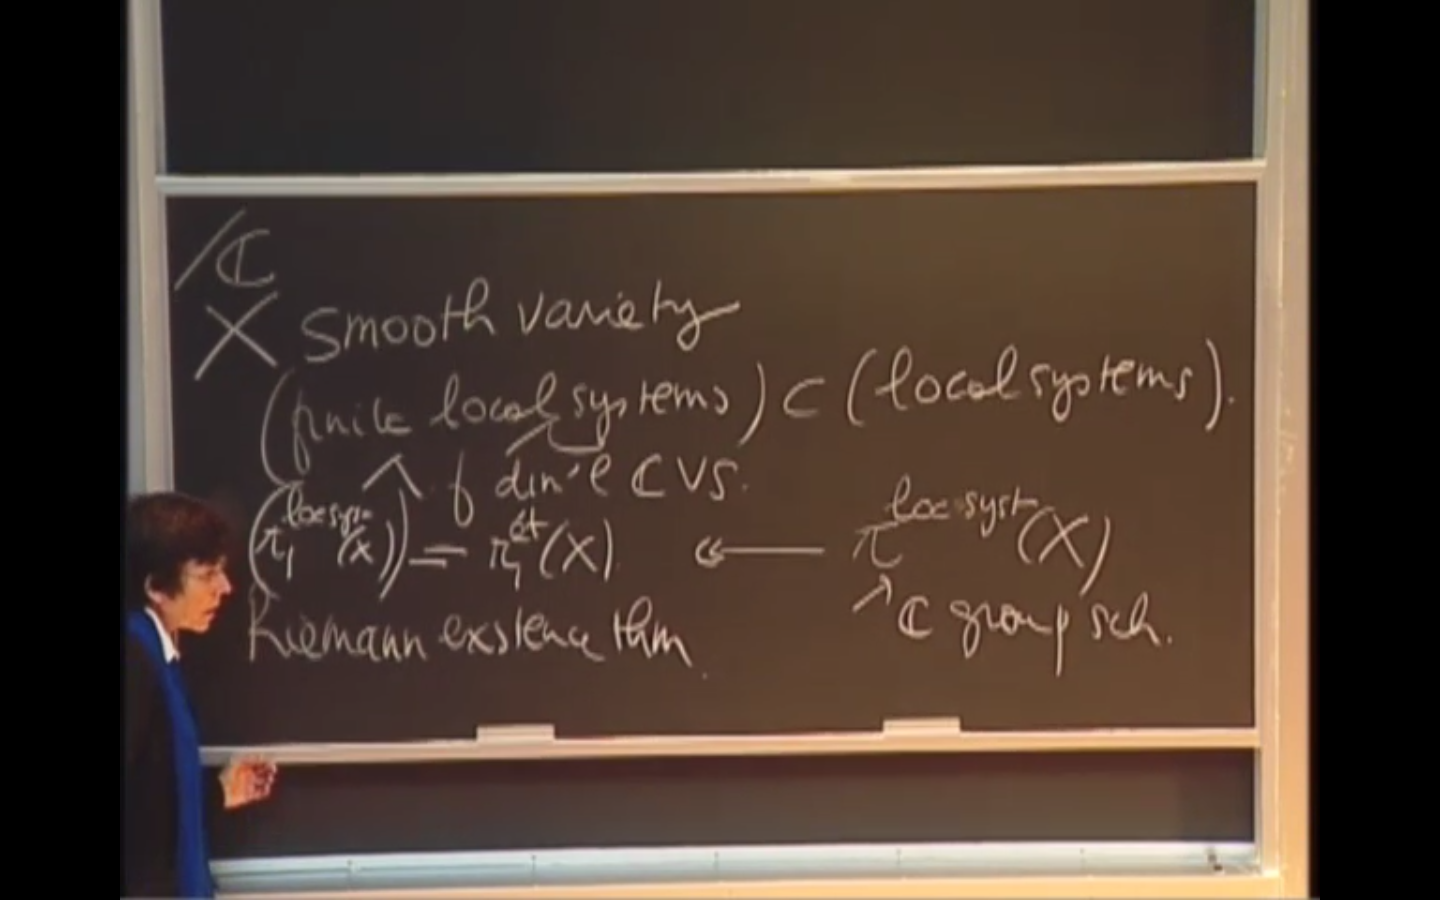 /ℂ
X smooth variety
(finite local systems) ⊂ (local systems).
f dim'l ℂ VS.
(π₁^{loc syst}(X))^ = π₁^{ét}(X) ↞ π^{loc syst}(X)
Riemann existence thm. ↗ ℂ group sch.